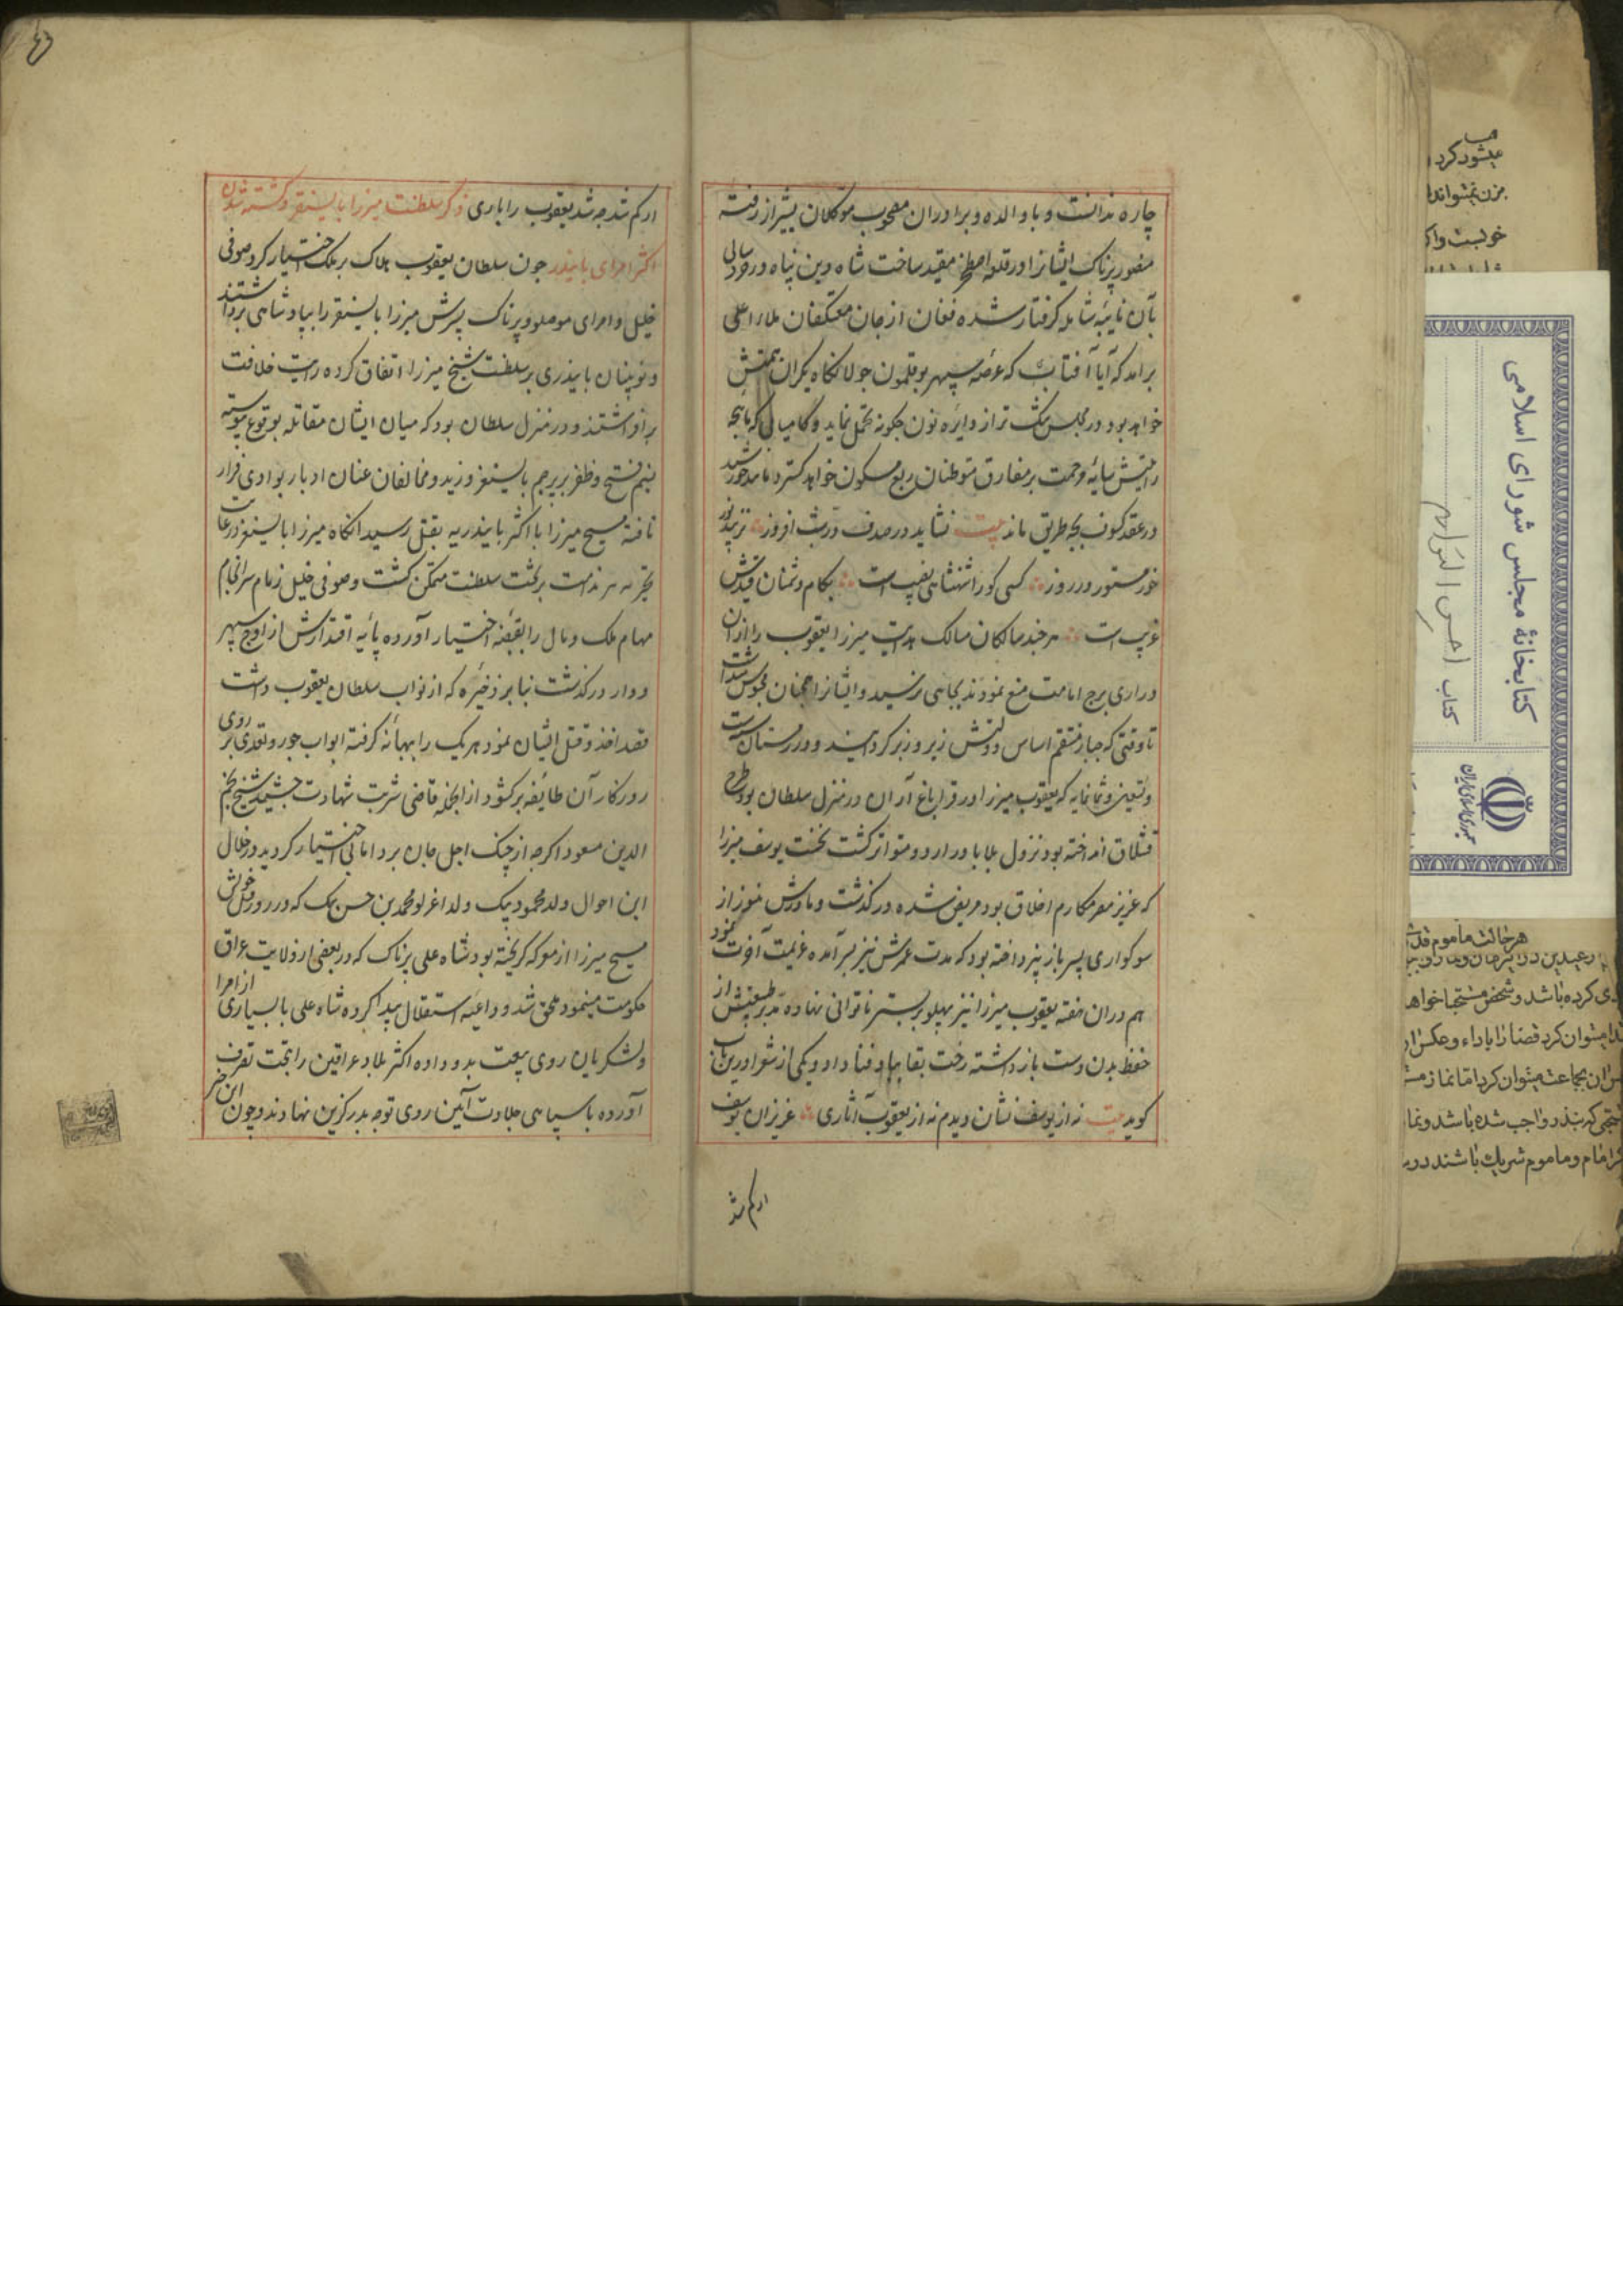 چاره ندانست و با والده و برادران مصحوب موکلان بشیراز رفته
منصور پرناک ایشانرا در قلعه اصطخر مقید ساخت شاه دین پناه در خورد سالی
بآن نایبه شامله گرفتار شده فغان از جان معتکفان ملاء اعلی
برآمد که آیا آفتابیت که عرصه سپهر بوقلمون جولانگاه یکران همتش
خواهد بود در مجلس تنگ تر از دایره نون چگونه تحمل نماید و کامیابی که
رایتش سایه رحمت بر مفارق متوطنان ربع مسکون خواهد گسترد تا مد خورشید
در عقد کسوف بچه طریق ماند بیت نشاید در صدف درّ شب افروز
خور مستور در روز کسی کورا شهنشاهی نصیب است بکام دشمنان
غریب است هرچند سالکان مسالک هدایت میرزا یعقوب را از آن
دراری برج امامت منع نمودند بجایی نرسید و ایشانرا همچنان محبوس میداشت
تا وقتی که جبار منتقم اساس دولتش زیر و زبر گردانید و در زمستان ست
و تسعین و ثمانمایه که یعقوب میرزا در قراباغ آران در منزل سلطان بود طرح
قشلاق انداخته بود نزول بلا با در اردو متواتر گشت نخست یوسف میرزا
که عزیز مصر مکارم اخلاق بود مریض شده درگذشت و مادرش هنوز از
سوکواری پسر باز نپرداخته بود که مدت عمرش نیز بسر آمده عزیمت آخرت نمود
هم دران هفته یعقوب میرزا نیز پهلو بر بستر ناتوانی نهاده مدبر طبیعتش از
حفظ بدن دست باز داشته رخت بقا بباد فنا داد و یکی از شعرا درین باب
گوید بیت نه از یوسف نشان دیدم نه از یعقوب آثاری عزیزان یوسف
ار گم شد
ار گم شد چه شد یعقوب را باری ذکر سلطنت میرزا بایسنقر و کشته شدن
اکثر امرای بایندر چون سلطان یعقوب هلاک بر ملک اختیار کرد صوفی
خلیل و امرای موصلو و پرناک پسرش میرزا بایسنقر را بپادشاهی برداشتند
و نوینان بایندری بر سلطنت مسیح میرزا اتفاق کرده رایت خلافت
برافراشتند و در منزل سلطان بود که میان ایشان مقاتله بوقوع پیوسته
نسیم فتح و ظفر بر پرچم بایسنقر وزید و مخالفان عنان ادبار بوادی فرار
تافته مسیح میرزا با اکثر بایندریه بقتل رسید آنگاه میرزا بایسنقر در غایت
بر تخت سلطنت متمکن گشت و صوفی خلیل زمام سرانجام
مهام ملک و مال را بقبضه اختیار آورده پایه اقتدارش از اوج سپهر
دوار درگذشت بنابر ذخیره که از نواب سلطان یعقوب داشت
قصد اخذ و قتل ایشان نمود هر یک را بهانه گرفته ابواب جور و تعدی بر روی
روزگار آن طایفه برگشود از آنجمله قاضی شربت شهادت چشید شیخ نجم
الدین مسعود اگرچه از چنگ اجل جان برد اما بی اختیار گردید و در خلال
این احوال ولد محمود بیک ولد اغرلو محمد بن حسن بیک که در روز قتل خویش
مسیح میرزا از معرکه گریخته بود شاه علی پرناک که در بعضی از ولایت عراق
حکومت مینمود ملحق شد و داعیه استقلال پیدا کرده شاه علی با بسیاری از امرا
و لشکریان روی بیعت بدو داده اکثر بلاد عراقین را بتحت تصرف
آورده با سپاهی جلادت آیین روی توجه بدرگزین نهادند و چون این خبر
کتابخانهٔ مجلس شورای اسلامی
کتاب
جمهوری اسلامی ایران
میشود کرد
هر حالت ماموم